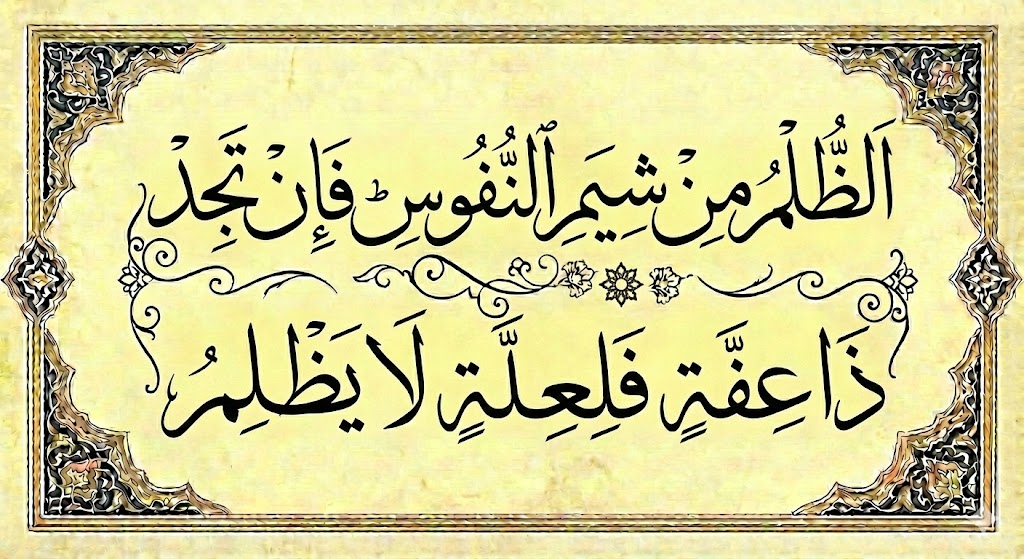 اَلظُّلْمُ مِنْ شِيَمِ ٱلنُّفُوسِ فَإِنْ تَجِدْ
ذَا عِفَّةٍ فَلِعِلَّةٍ لَا يَظْلِمُ